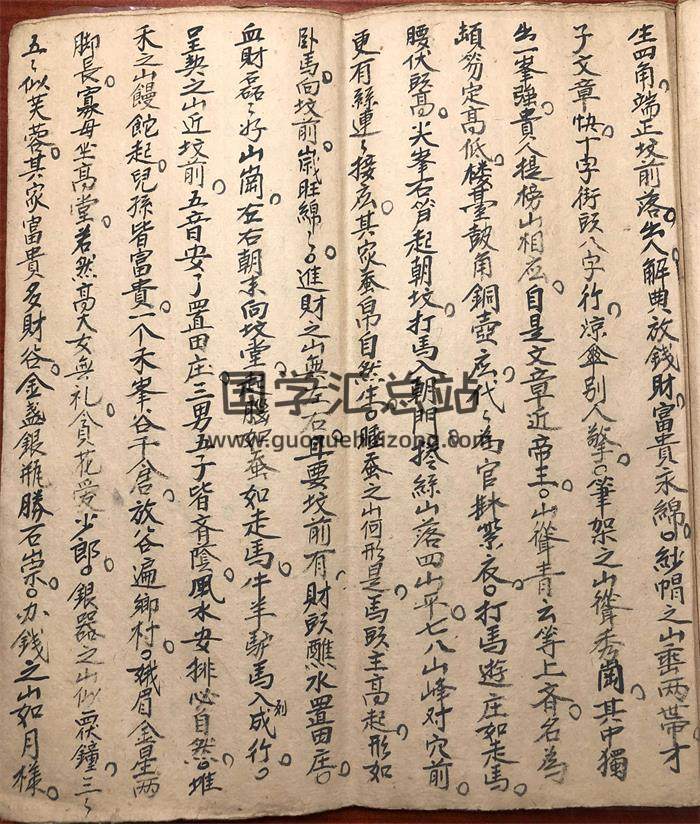 生四角端正坟前落。出人解典放钱財。富貴永綿。紗帽之山垂两带。才
子文章快。十字街頭八字行。凉傘别人擎。筆架之山聳秀。其中獨
出一峯强。貴人提榜山相应。自是文章近帝王。山聳青云等上齐。名為
定高低。楼臺鼓角銅壺应。代〻為官衣。打馬遊庄如走馬。
腰伏頭高。尖峯右肖起朝坟。打馬入朝門。絲山落四山平。七八山峰对穴前
更有絲連〻接应。其家蚕帛自然生。睡蚕之山何形是。馬頭主高起形如
卧馬向坟前。歲旺綿〻。進財之山無左右。且要坟前有。財頭水置田庄。
血財磊〻好山崗。左右朝来向坟堂。腦如蚕如走馬。牛羊駞馬入成行。
呈契之山近坟前。五音安了置田庄。三男五子皆齐蔭。風水安排必自然。堆
禾之山饅起。兒孫皆富貴。一个禾峯谷千倉。放谷遍鄉村。娥眉金星两
脚長。寡母坐高堂。若然高大女無礼。貪花受少郎。銀器之山似覆鐘。三〻
五〻似芙蓉。其家富貴多財谷。金盏銀瓶勝石崇。办錢之山如月樣。
国学汇总站
www.guoxuehuizong.com